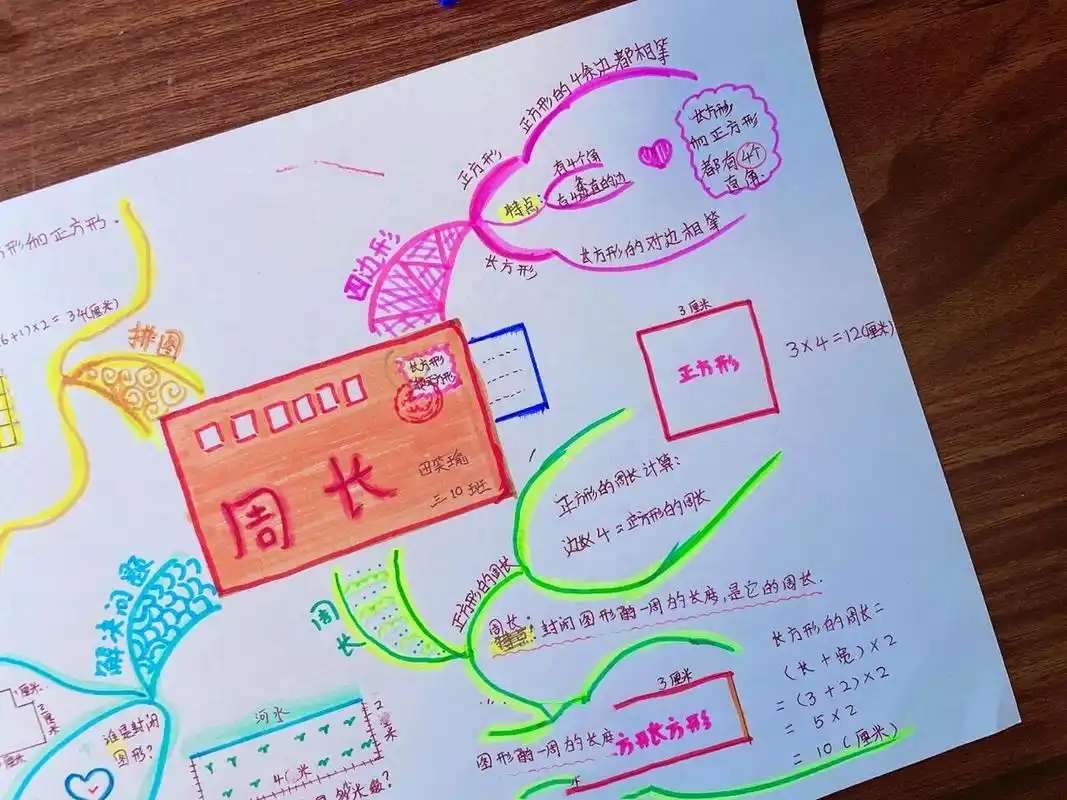 正方形的4条边都相等
长方形
和正方形
都有4个
直角.
正方形
有4个角
特点:
有4条直的边
四边形
长方形
长方形的对边相等
形和正方形.
6+1)×2=34(厘米)
拼图
长方形
和正方形
周长
三.10班
3厘米
正方形
3×4=12(厘米)
正方形的周长计算:
边长×4=正方形的周长
正方形的周长
周长
周长:
封闭图形的一周的长度,是它的周长.
长方形的周长=
(长+宽)×2
=(3+2)×2
=5×2
=10(厘米)
3厘米
长方形
图形的一周的长度
解决问题
厘米
2厘米
厘米
谁是封闭
图形?
河水
2米
4(米